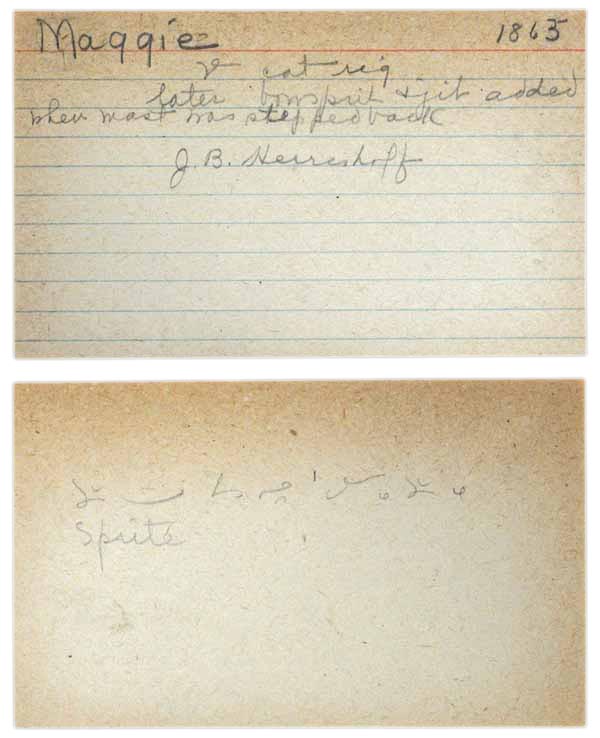 Maggie 1865
cat rig
later bowsprit & jib added
when mast was stepped back
J. B. Herreshoff
Sprite